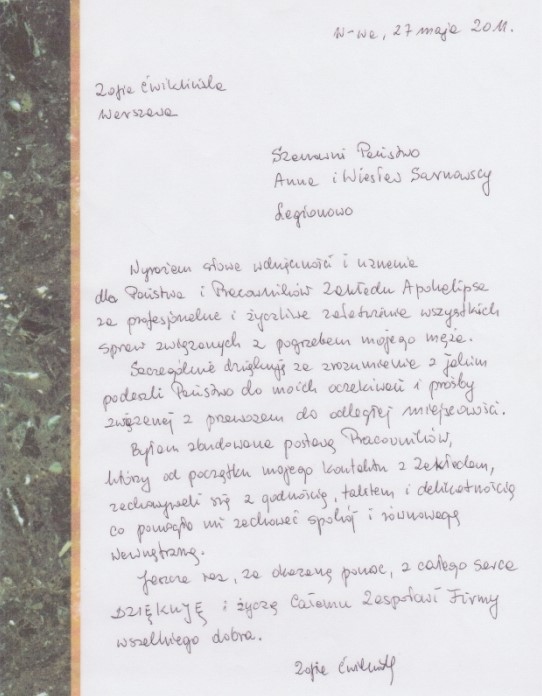 W-wa, 27 maja 2011.
Zofia Ćwiklińska
Warszawa
Szanowni Państwo
Anna i Wiesław Sarnowscy
Legionowo
Wyrażam słowa wdzięczności i uznania
dla Państwa i Pracowników Zakładu Apokalipsa
za profesjonalne i życzliwe załatwienie wszystkich
spraw związanych z pogrzebem mojego męża.
Szczególnie dziękuję za zrozumienie z jakim
podeszli Państwo do moich oczekiwań i prośby
związanej z przewozem do odległej miejscowości.
Byłam zbudowana postawą Pracowników,
którzy od początku mojego kontaktu z Zakładem,
zachowywali się z godnością, taktem i delikatnością
co pomogło mi zachować spokój i równowagę
wewnętrzną.
Jeszcze raz, za okazaną pomoc, z całego serca
DZIĘKUJĘ i życzę Całemu Zespołowi Firmy
wszelkiego dobra.
Zofia Ćwiklińska